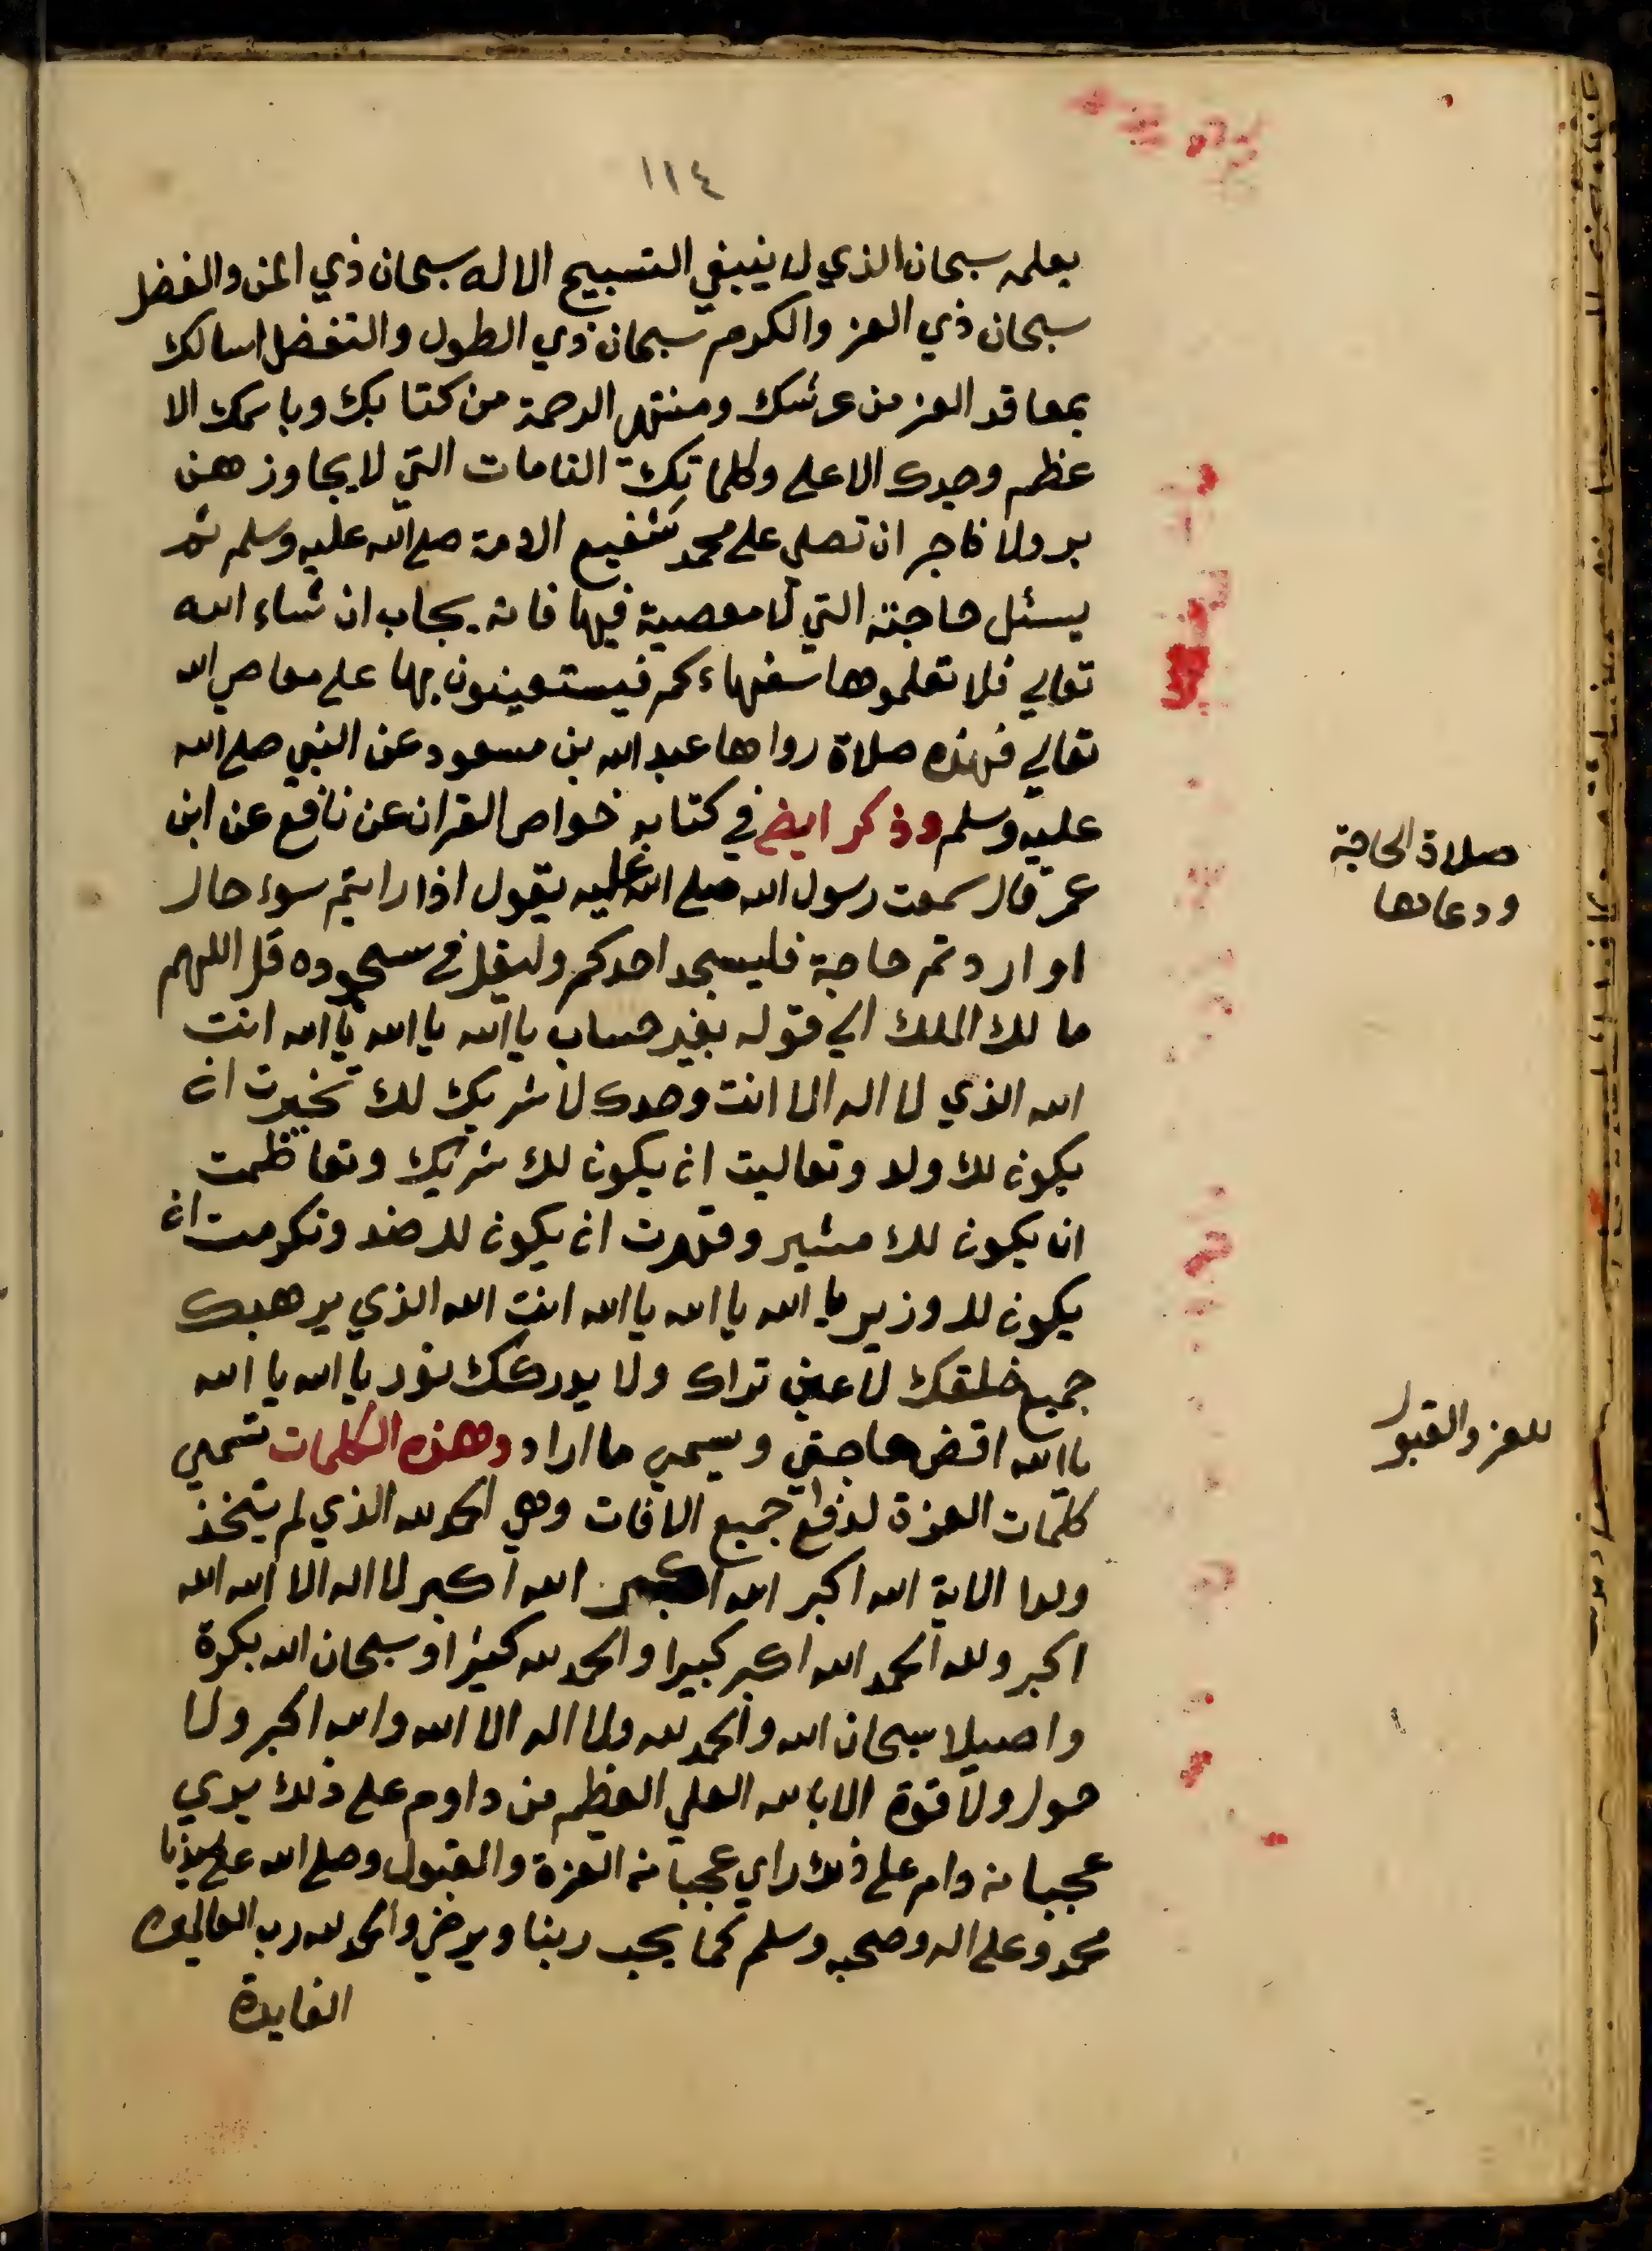 ١١٤
بعلمه سبحان الذي لا ينبغي التسبيح الا له سبحان ذي المن والفضل
سبحان ذي العز والكرم سبحان ذي الطول والتفضل اسالك
بمعاقد العز من عرشك ومنتهى الرحمة من كتابك وباسمك الا
عظم وجدك الاعلى وكلماتك التامات التي لا يجاوزهن
بر ولا فاجر ان تصلي على محمد شفيع الامة صلى الله عليه وسلم ثم
يسئل حاجته التي لا معصية فيها فانه يجاب ان شاء الله
تعالي فلا تعلموها سفهاءكم فيستعينون بها على معاصي الله
تعالي فهذه صلاة رواها عبد الله بن مسعود عن النبي صلى الله
عليه وسلم وذكر ايضا في كتابه خواص القران عن نافع عن ابن
صلاة الحاجة
ودعاءها
عمر قال سمعت رسول الله صلى الله عليه يقول اذا رايتم سوء حال
او اردتم حاجة فليسجد احدكم وليقل في سجوده قل اللهم
مالك الملك الي قوله بغير حساب يا الله يا الله يا الله انت
الله الذي لا اله الا انت وحدك لا شريك لك تخيرت ان
يكون لك ولد وتعاليت ان يكون لك شريك وتعاظمت
ان يكون لك مشير وقهرت ان يكون لك ضد وتكرمت ان
يكون لك وزير يا الله يا الله يا الله انت الله الذي يرهبك
جميع خلقك لا عين تراك ولا يدركك نور يا الله يا الله
يا الله اقض حاجتي ويسمي ما اراد وهذه الكلمات تسمي
للعز والقبول
كلمات العزة لدفع جميع الافات وهي الحمد لله الذي لم يتخذ
ولدا الاية الله اكبر الله اكبر الله اكبر لا اله الا الله الله
اكبر ولله الحمد الله اكبر كبيرا والحمد لله كثيرا وسبحان الله بكرة
واصيلا سبحان الله والحمد لله ولا اله الا الله والله اكبر ولا
حول ولا قوة الا بالله العلي العظيم من داوم على ذلك يري
عجبا من دام على ذلك راي عجبا من العزة والقبول وصلى الله على سيدنا
محمد وعلى اله وصحبه وسلم كما يحب ربنا ويرضي والحمد لله رب العالمين
الفايدة